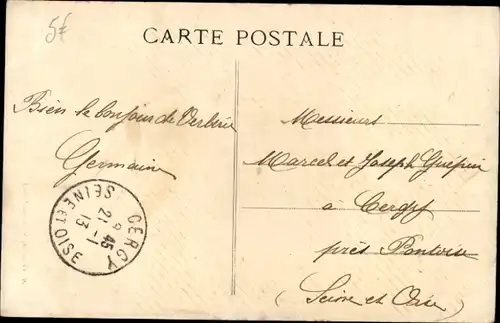 5€
CARTE POSTALE
Bien le bonjour de Verberie
Germaine
Messieurs
Marcel et Joseph Guépin
à Cergy
près Pontoise
(Seine et Oise)
CERGY
9 45
21 - 1
13
SEINE ET OISE